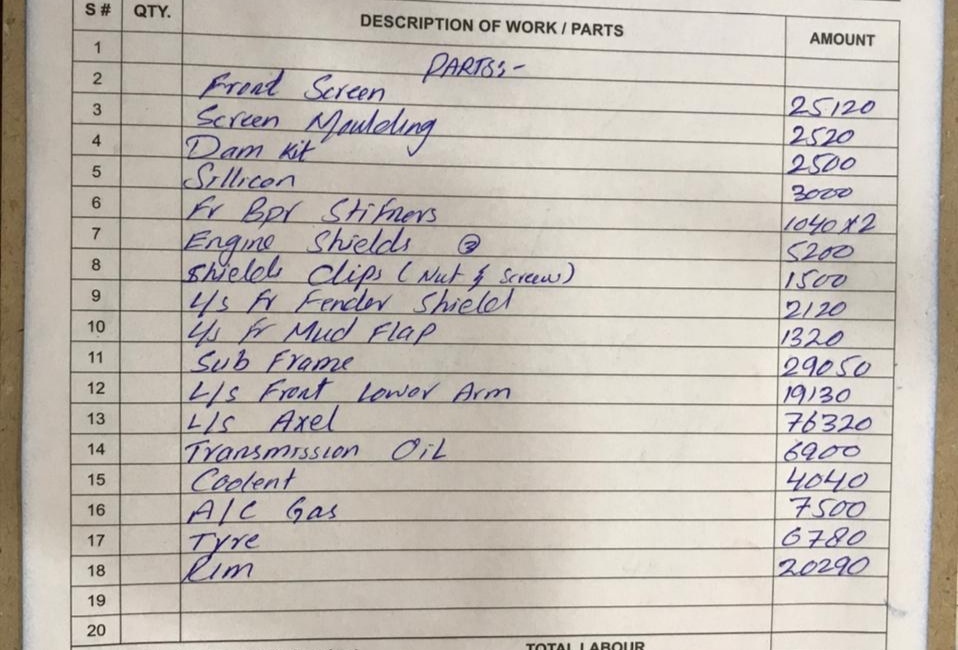 S # QTY. DESCRIPTION OF WORK / PARTS AMOUNT
1 PARTS:-
2 Front Screen 25120
3 Screen Moulding 2520
4 Dam Kit 2500
5 Sillicon 3000
6 Fr Bpr Stifners 1040 x 2
7 Engine Shields 5200
8 Shields Clips (Nut & Screws) 1500
9 L/s Fr Fender Shield 2120
10 L/s Fr Mud Flap 1320
11 Sub Frame 29050
12 L/s Front Lower Arm 19130
13 L/s Axel 76320
14 Transmission Oil 6900
15 Coolent 4040
16 A/C Gas 7500
17 Tyre 6780
18 Rim 20290
19
20
TOTAL LABOUR